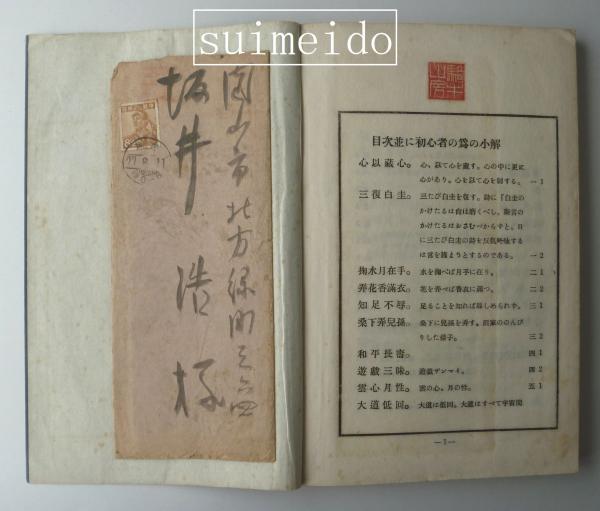 suimeido
岡山市北方緑町三ノ四
坂井浩様
騎牛山房
目次並に初心者の爲の小解
心以藏心。 心、以て心を藏す。心の中に更に
心があり、心を以て心を制する。 一1
三復白圭。 三たび白圭を復す。詩に『白圭の
かけたるは尚ほ磨くべし、斯言の
かけたるはおさむべからず』と、日
に三たび白圭の詩を反覆吟咏する
は言を謹まうとするのである。 一2
掬水月在手。 水を掬べば月手に在り。 二1
弄花香滿衣。 花を弄べば香衣に滿つ。 二2
知足不辱。 足ることを知れば辱しめられず。 三1
桑下弄兒孫。 桑下に兒孫を弄す。田家ののんび
りした樣子。 三2
和平長壽。 四1
遊戲三昧。 遊戲ザンマイ。 四2
雲心月性。 雲の心、月の性。 五1
大道低回。 大道は低回。大道はすべて宇宙間
—1—